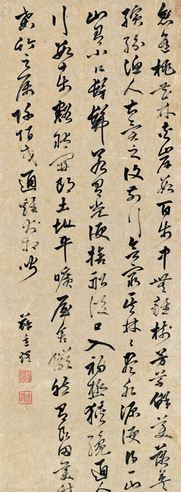 忽逢桃花林夾岸數百步中無雜樹芳草鮮美落英
繽紛漁人甚異之復前行欲窮其林林盡水源便得一山
山有小口髣髴若有光便捨船從口入初極狹纔通人
行數十步豁然開朗土地平曠屋舍儼然有良田美池
桑竹之屬阡陌交通雞犬相聞